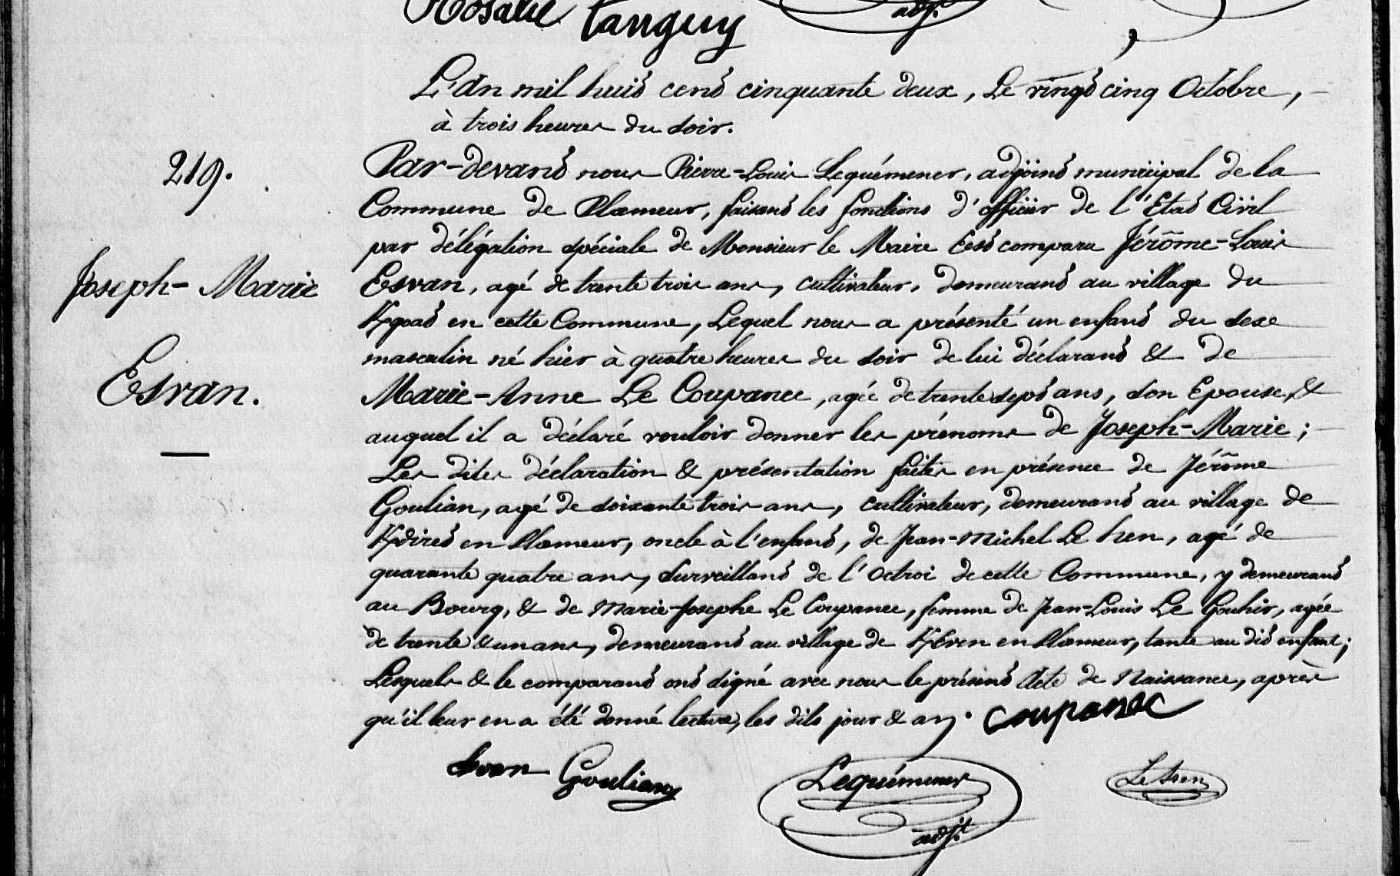 Rosalie Tanguy
adj.t
L'An mil huit cent cinquante deux, Le vingt cinq Octobre,
à trois heures du soir.
219.
Par-devant nous Pierre-Louis Lequémener, adjoint municipal de la
Commune de Ploemeur, faisant les fonctions d'officier de l'Etat Civil
par délégation spéciale de Monsieur le Maire Est comparu Jérôme-Louis
Joseph-Marie
Esvan, agé de trente trois ans, cultivateur, demeurant au village du
Kgoat en cette Commune, Lequel nous a présenté un enfant du sexe
masculin né hier à quatre heures du soir de lui déclarant & de
Esvan.
Marie-Anne Le Coupanec, agée de trente sept ans, son Epouse, &
auquel il a déclaré vouloir donner les prénoms de Joseph-Marie;
Les dites déclaration & présentation faites en présence de Jérôme
Goulian, agé de soixante trois ans, cultivateur, demeurant au village de
en Ploemeur, oncle à l'enfant, de Jean-Michel Le hen, agé de
quarante quatre ans, surveillant de l'Octroi de cette Commune, y demeurant
au Bourg, & de Marie-Josephe Le Coupanec, femme de Jean-Louis Le Gouhir, agée
de trente & un ans, demeurant au village de Kerven en Ploemeur, tante au dit enfant;
Lesquels & le comparant ont signé avec nous le présent Acte de Naissance, après
qu'il leur en a été donné lecture, les dits jour & an. Coupanec
Svan Goulian Lequémener Le hen
adj.t